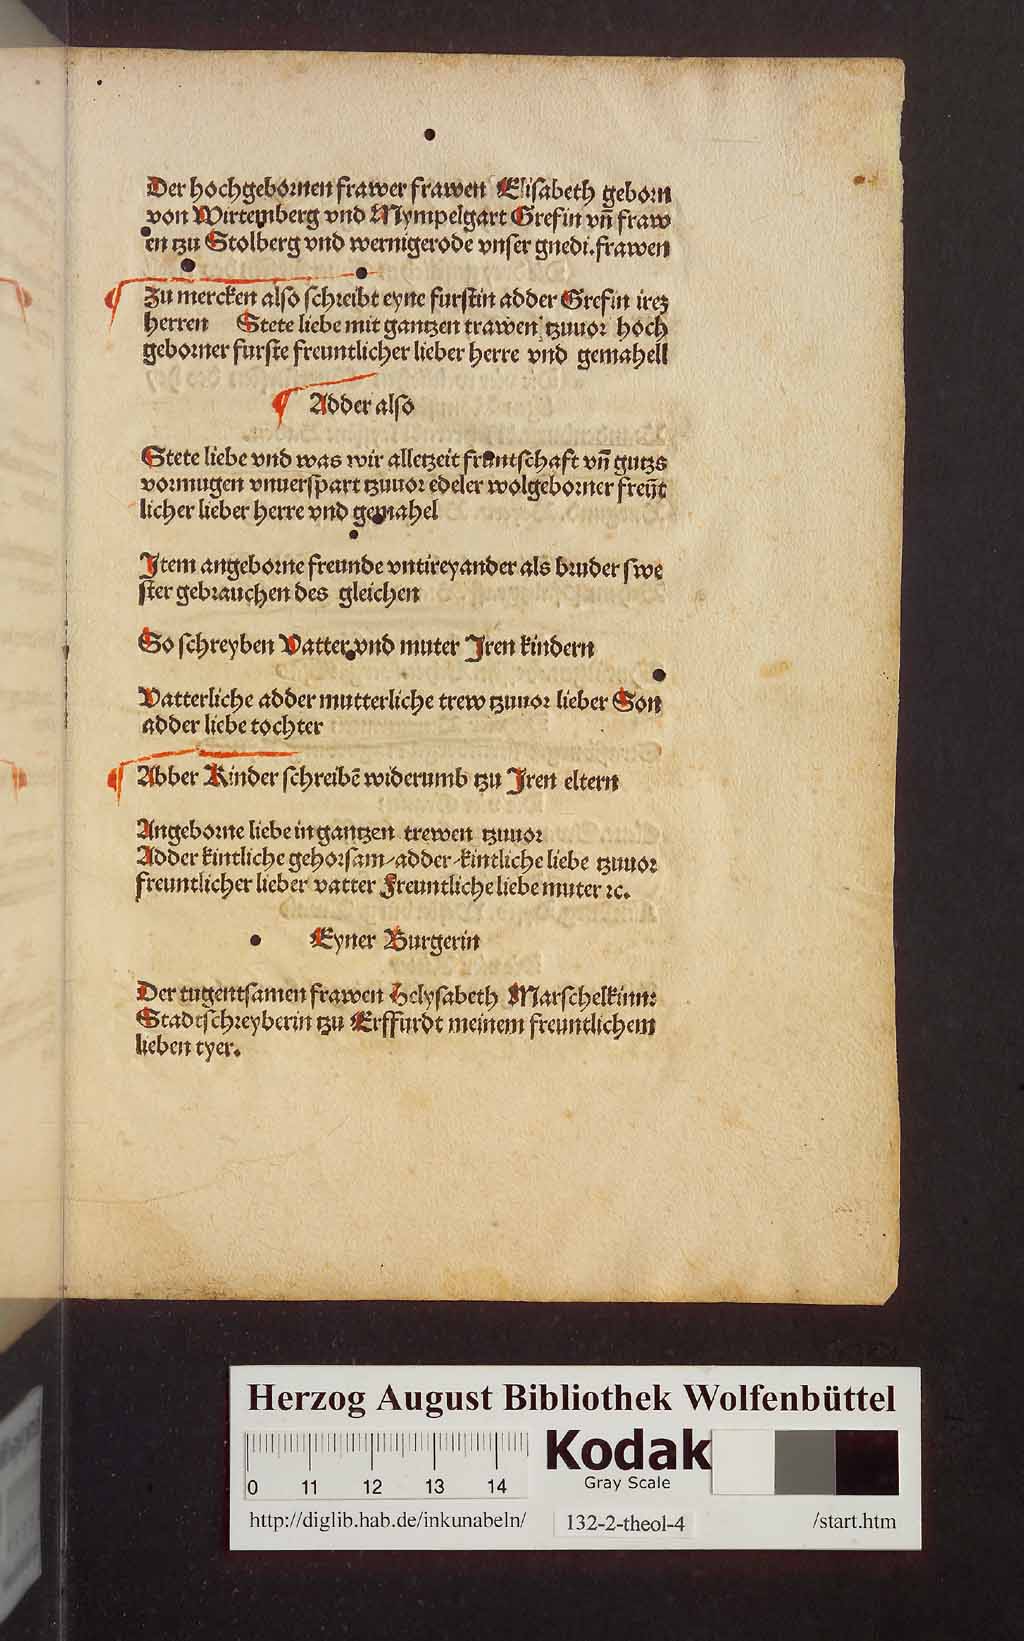 Der hochgebornen frawer frawen Elisabeth geborn
von Wirtemberg vnd Mympelgart Grefin vn̄ fraw
en tzu Stolberg vnd wernigerode vnser gnedi. frawen
Zu mercken also schreibt eyne furstin adder Grefin irez
herren Stete liebe mit gantzen trawen tzuuor hoch
geborner furste freuntlicher lieber herre vnd gemahell
Adder also
Stete liebe vnd was wir alletzeit fruntschaft vn̄ gutzs
vormugen vnuerspart tzuuor edeler wolgeborner freūt
licher lieber herre vnd gemahel
Item angeborne freunde vntireyander als bruder swe
ster gebrauchen des gleichen
So schreyben Vatter vnd muter Iren kindern
Vatterliche adder mutterliche trew tzuuor lieber Son
adder liebe tochter
Abber Kinder schreibē widerumb tzu Iren eltern
Angeborne liebe in gantzen trewen tzuuor
Adder kintliche gehorsam/adder/kintliche liebe tzuuor
freuntlicher lieber vatter Freuntliche liebe muter ꝛc.
Eyner Burgerin
Der tugentsamen frawen Helysabeth Marschelkinn:
Stadtschreyberin tzu Erffurdt meinem freuntlichem
lieben tyer.
Herzog August Bibliothek Wolfenbüttel
Kodak
Gray Scale
0 11 12 13 14
http://diglib.hab.de/inkunabeln/ 132-2-theol-4 /start.htm